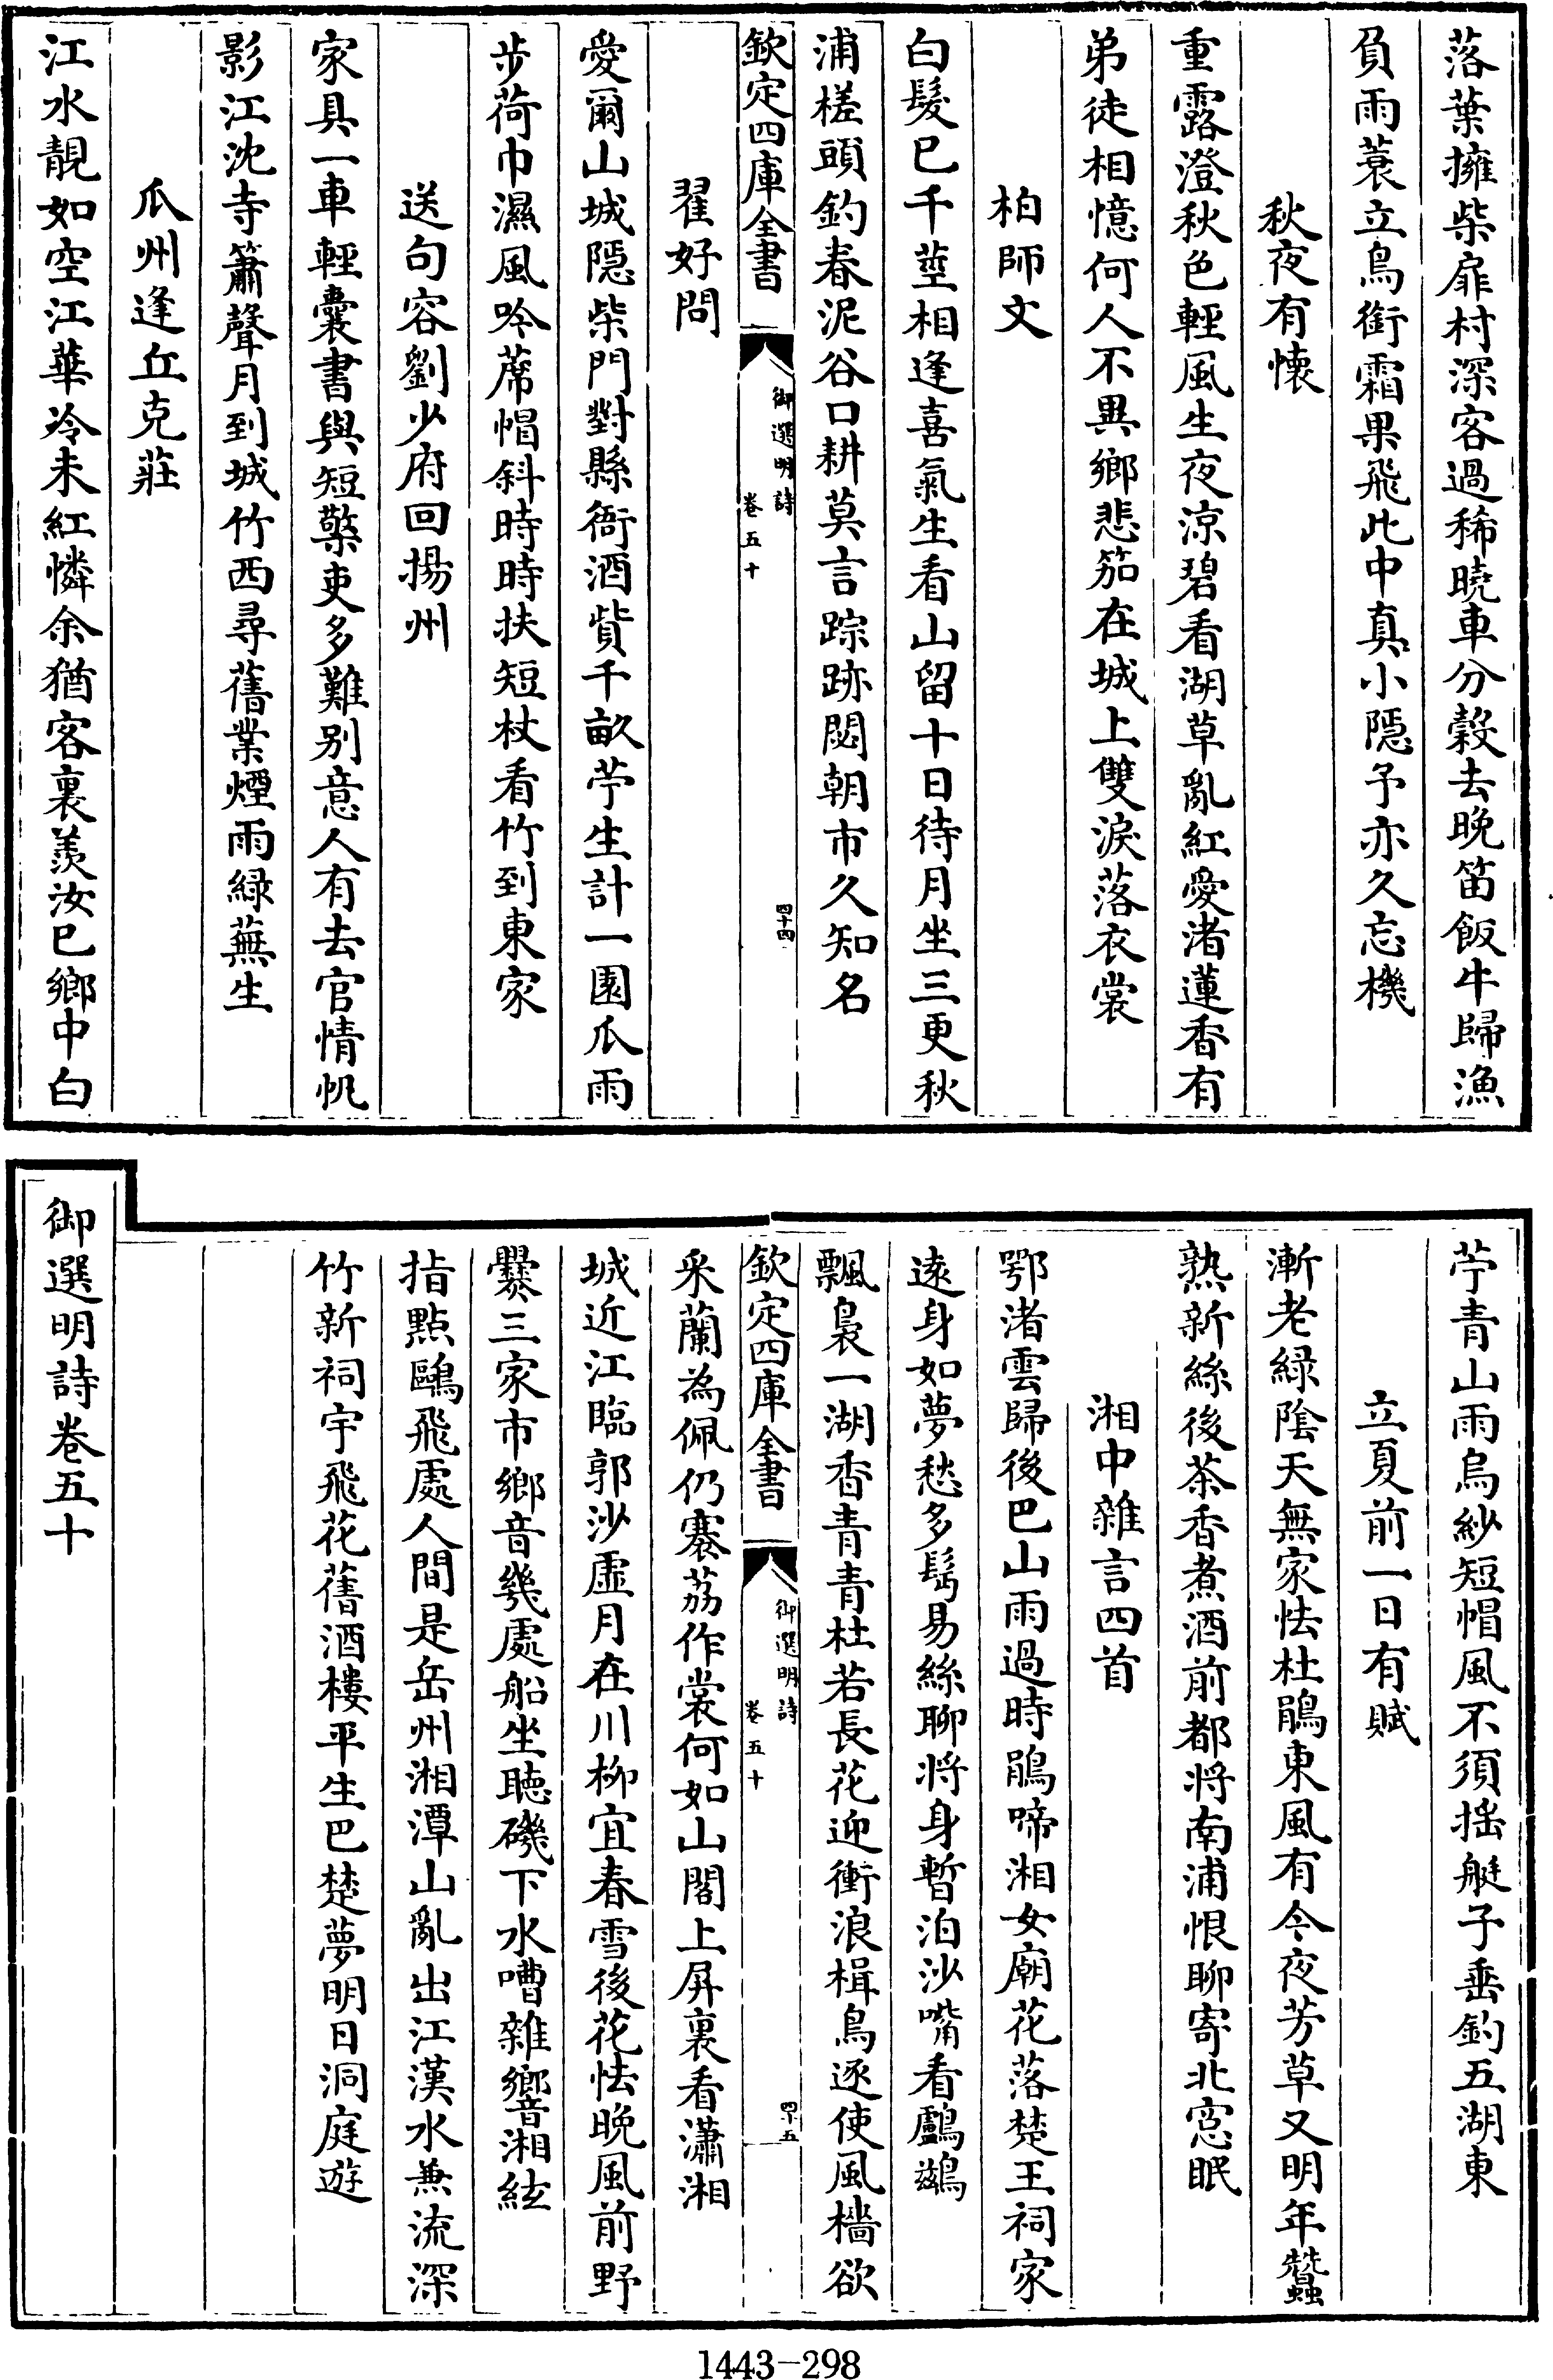 落葉擁柴扉村深客過稀曉車分穀去晚笛飯牛歸漁
負雨蓑立鳥銜霜果飛此中真小隱予亦久忘機
秋夜有懷
重露澄秋色輕風生夜涼碧看湖草亂紅愛渚蓮香有
弟徒相憶何人不異鄉悲笳在城上雙淚落衣裳
柏師文
白髮已千莖相逢喜氣生看山留十日待月坐三更秋
浦槎頭釣春泥谷口耕莫言踪跡閟朝市久知名
欽定四庫全書
御選明詩
卷五十
四十四
翟好問
愛爾山城隱柴門對縣衙酒貲千畝苧生計一園瓜雨
步荷巾濕風吟蓆帽斜時時扶短杖看竹到東家
送句容劉少府回揚州
家具一車輕囊書與短檠吏多難別意人有去官情帆
影江沈寺簫聲月到城竹西尋舊業煙雨綠蕪生
瓜州逢丘克莊
江水靚如空江華冷未紅憐余猶客裏羨汝已鄉中白
苧青山雨烏紗短帽風不須搖艇子垂釣五湖東
立夏前一日有賦
漸老綠陰天無家怯杜鵑東風有今夜芳草又明年蠶
熟新絲後茶香煮酒前都將南浦恨聊寄北窓眠
湘中雜言四首
鄂渚雲歸後巴山雨過時鵑啼湘女廟花落楚王祠家
遠身如夢愁多髩易絲聊將身暫泊沙嘴看鸕鷀
飄裊一湖香青青杜若長花迎衝浪楫鳥逐使風檣欲
欽定四庫全書
御選明詩
卷五十
四十五
采蘭為佩仍褰荔作裳何如山閣上屏裏看瀟湘
城近江臨郭沙虛月在川柳宜春雪後花怯晚風前野
爨三家市鄉音幾處船坐聽磯下水嘈雜響湘絃
指點鷗飛處人間是岳州湘潭山亂出江漢水兼流深
竹新祠宇飛花舊酒樓平生巴楚夢明日洞庭遊
御選明詩卷五十
1443-298